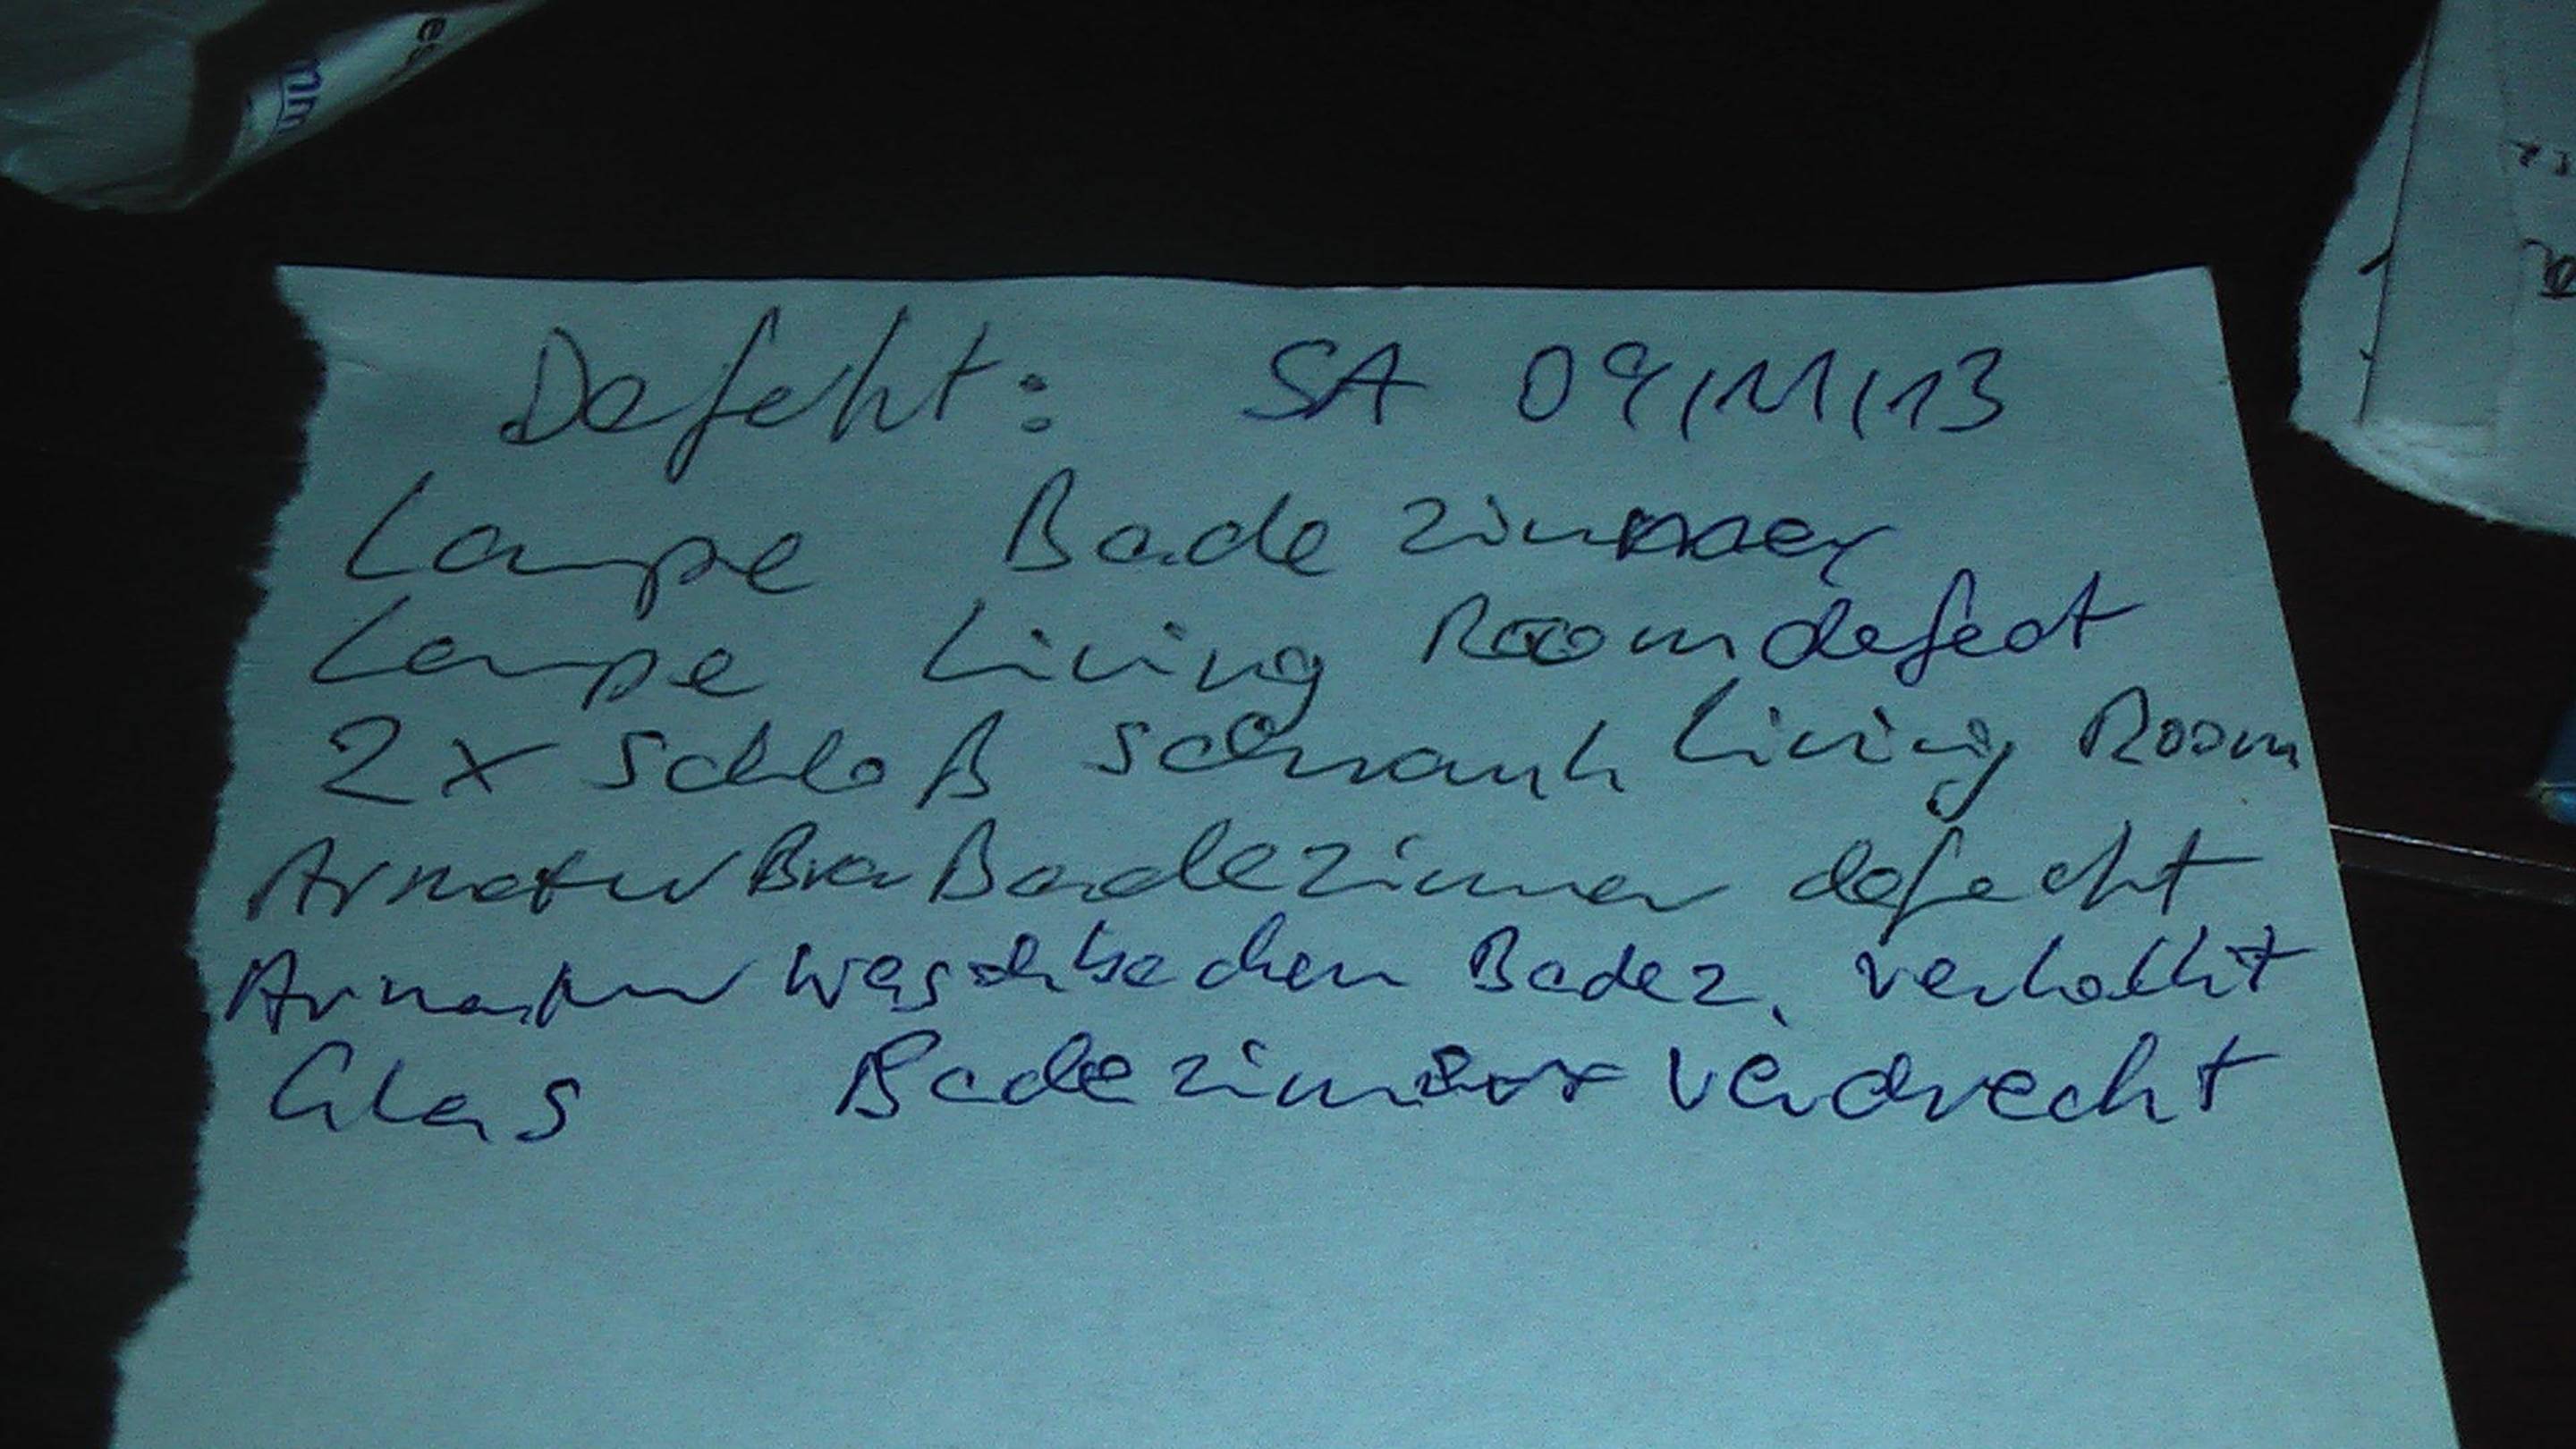 Defekt: SA 09/11/13
Lampe Badezimmer
Lampe Living Room defect
2x Schloß Schrank Living Room
Armatur Badezimmer defekt
Armatur Waschbecken Badez. verkalkt
Glas Badezimmer verdreckt